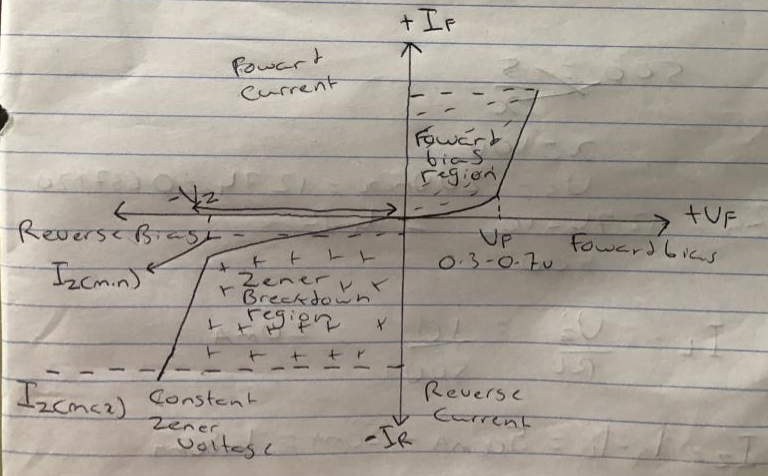 + IF
Foward
Current
Foward
bias
region
-Vz
+VF
Reverse Bias
VF
Foward bias
0.3-0.7v
Iz(min)
Zener
Breakdown
region
Iz(max)
Constant
Zener
Voltage
Reverse
Current
-IR